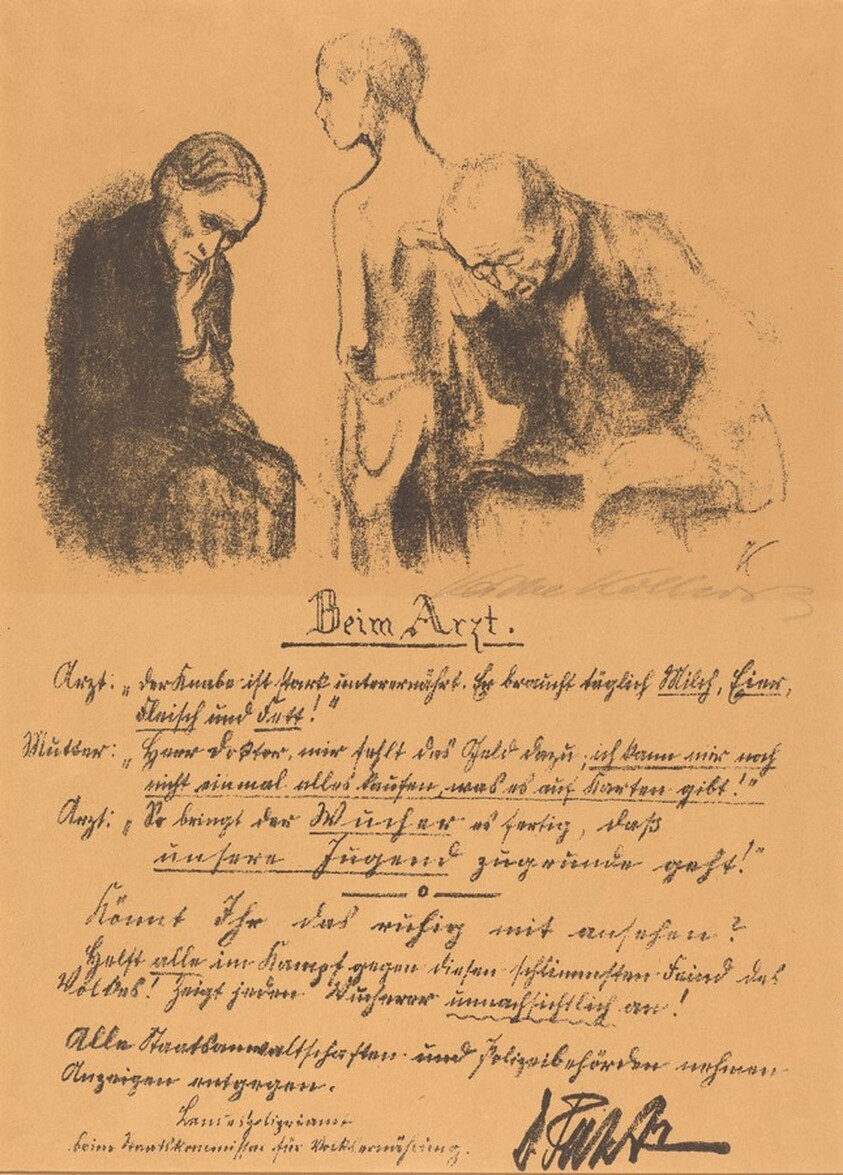 Käthe Kollwitz
Beim Arzt.
Arzt: „Der Knabe ist stark unterernährt. Er braucht täglich Milch, Eier,
Fleisch und Fett!“
Mutter: „Herr Doktor, mir fehlt das Geld dazu, ich kann mir noch
nicht einmal alles kaufen, was es auf Karten gibt!“
Arzt: „So bringt der Wucher es fertig, daß
unsere Jugend zugrunde geht!“
Könnt Ihr das ruhig mit ansehen?
Helft alle im Kampf gegen diesen schlimmsten Feind des
Volkes! Zeigt jeden Wucherer unnachsichtlich an!
Alle Staatsanwaltschaften und Polizeibehörden nehmen
Anzeigen entgegen.
Landespolizeiamt
beim Staatskommissar für Volksernährung.